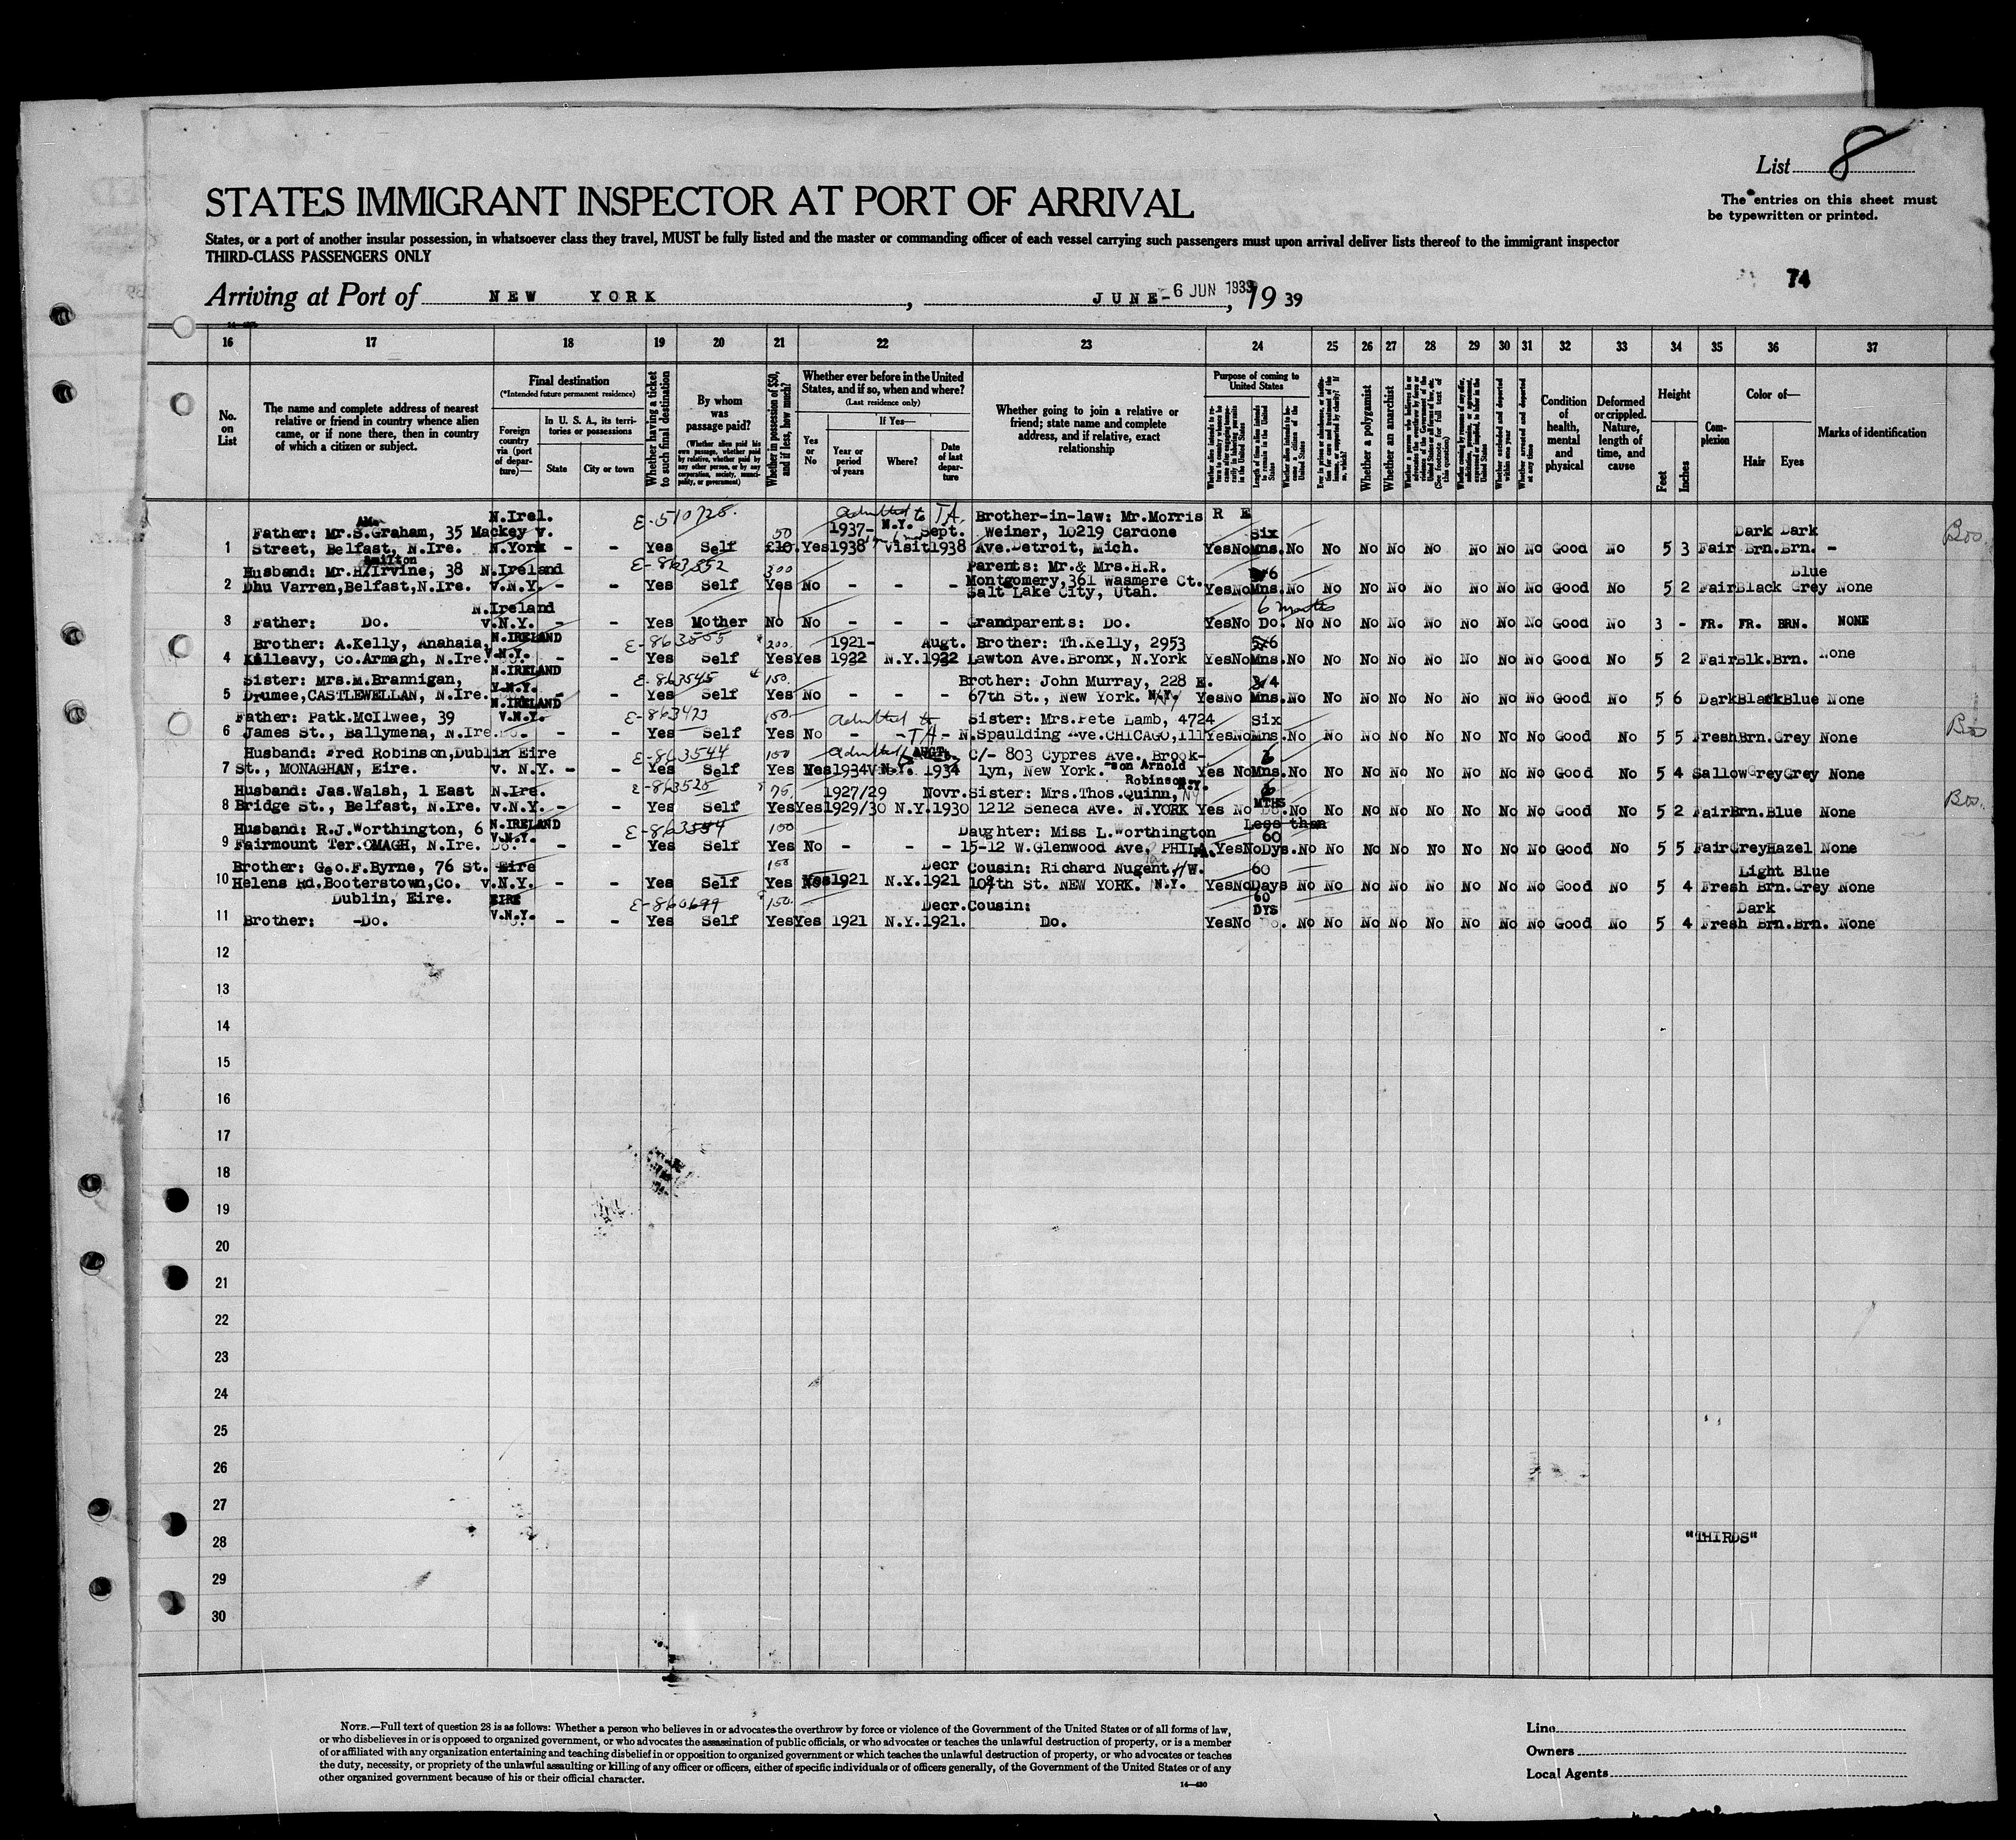 List 8
STATES IMMIGRANT INSPECTOR AT PORT OF ARRIVAL
The entries on this sheet must
be typewritten or printed.
States, or a port of another insular possession, in whatsoever class they travel, MUST be fully listed and the master or commanding officer of each vessel carrying such passengers must upon arrival deliver lists thereof to the immigrant inspector
THIRD-CLASS PASSENGERS ONLY
74
Arriving at Port of NEW YORK, JUNE- 6 JUN 1939, 19 39
16 17 18 19 20 21 22 23 24 25 26 27 28 29 30 31 32 33 34 35 36 37
No. on List
The name and complete address of nearest relative or friend in country whence alien came, or if none there, then in country of which a citizen or subject.
Final destination
(*Intended future permanent residence)
Foreign country via (port of departure)—
In U. S. A., its territories or possessions
State
City or town
Whether having a ticket to such final destination
By whom was passage paid?
(Whether alien paid his own passage, whether paid by relative, whether paid by any other person, or by any corporation, society, municipality, or government)
Whether in possession of $50, and if less, how much?
Whether ever before in the United States, and if so, when and where?
(Last residence only)
Yes or No
If Yes—
Year or period of years
Where?
Date of last departure
Whether going to join a relative or friend; state name and complete address, and if relative, exact relationship
Purpose of coming to United States
Length of time alien intends to remain in the United States
Whether alien intends to become a citizen of the United States
Whether a polygamist
Whether an anarchist
Whether arrested and deported at any time
Condition of health, mental and physical
Deformed or crippled. Nature, length of time, and cause
Height
Feet
Inches
Complexion
Color of—
Hair
Eyes
Marks of identification
N.Irel. E-510728. Admitted to TA. Brother-in-law: Mr.Morris R E
Father: Mr.S.Graham, 35 Mackey v. 50 1937- N.Y. Sept. Weiner, 10219 Cardone Six Dark Dark
1 Street, Belfast, N.Ire. N.York - - Yes Self £10. Yes 1938 visit 1938 Ave.Detroit, Mich. Yes No Mns. No No No No No No No No Good No 5 3 Fair Brn. Brn. -
Husband: Mr.H/Irvine, 38 N.Ireland E-863552 300 Parents: Mr.& Mrs.H.R. 6 Blue
2 Dhu Varren,Belfast,N.Ire. v.N.Y. - - Yes Self Yes No - - - Montgomery,361 Wasmere Ct. Yes No Mns. No No No No No No No No Good No 5 2 Fair Black Grey None
Salt Lake City, Utah.
N.Ireland 6 months
3 Father: Do. v.N.Y. - - Yes Mother No No - - - Grandparents: Do. Yes No Do. No No No No No No No No Good No 3 - FR. FR. BRN. NONE
Brother: A.Kelly, Anahaia, N.IRELAND E-863555 200 1921- Augt. Brother: Th.Kelly, 2953 6
4 Killeavy, Co.Armagh, N.Ire. V.N.Y. - - Yes Self Yes Yes 1922 N.Y. 1922 Lawton Ave.Bronx, N.York Yes No Mns. No No No No No No No No Good No 5 2 Fair Blk. Brn. None
Sister: Mrs.M.Brannigan, N.IRELAND E-863545 150. Brother: John Murray, 228 E. 4
5 Drumee,CASTLEWELLAN, N.Ire. V.N.Y. - - Yes Self Yes No - - - 67th St., New York. N.Y. Yes No Mns. No No No No No No No No Good No 5 6 Dark Black Blue None
Father: Patk.McIlwee, 39 N.IRELAND V.N.Y. E-863473 150 Admitted to Sister: Mrs.Pete Lamb, 4724 Six
6 James St., Ballymena, N.Ire. Do. - - Yes Self Yes No - - TA - N.Spaulding Ave.CHICAGO,Ill Yes No Mns. No No No No No No No No Good No 5 5 Fresh Brn. Grey None
Husband: Fred Robinson,Dublin Eire E-863544 150 Admitted AUGT. C/- 803 Cypres Ave. Brook- 6
7 St., MONAGHAN, Eire. v. N.Y. - - Yes Self Yes Yes 1934 N.Y. 1934 lyn, New York. -son Arnold Robinson. Yes No Mns. No No No No No No No No Good No 5 4 Sallow Grey Grey None
Husband: Jas.Walsh, 1 East N.Ire. E-863528 75. 1927/29 Novr. Sister: Mrs.Thos.Quinn, N.Y. 6
8 Bridge St., Belfast, N.Ire. v.N.Y. - - Yes Self Yes Yes 1929/30 N.Y. 1930 1212 Seneca Ave. N.YORK Yes No MTHS No No No No No No No No Good No 5 2 Fair Brn. Blue None
Husband: R.J.Worthington, 6 N.IRELAND E-863554 100 Daughter: Miss L.Worthington Less than 60
9 Fairmount Ter.OMAGH, N.Ire. V.N.Y. - - Yes Self Yes No - - - 15-12 W.Glenwood Ave, PHILA. Yes No Dys. No No No No No No No No Good No 5 5 Fair Grey Hazel None
Brother: Geo.F.Byrne, 76 St. Eire 150 Decr Cousin: Richard Nugent, W. 60 Light Blue
10 Helens Rd.Booterstown,Co. v.N.Y. - - Yes Self Yes Yes 1921 N.Y. 1921 104th St. NEW YORK. N.Y. Yes No Days No No No No No No No No Good No 5 4 Fresh Brn. Grey None
Dublin, Eire. EIRE E-860699 150. Decr. Cousin: 60 DYS Dark
11 Brother: -Do. V.N.Y. - - Yes Self Yes Yes 1921 N.Y. 1921. Do. Yes No Do. No No No No No No No No Good No 5 4 Fresh Brn. Brn. None
12
13
14
15
16
17
18
19
20
21
22
23
24
25
26
27
28 "THIRDS"
29
30
NOTE.—Full text of question 28 is as follows: Whether a person who believes in or advocates the overthrow by force or violence of the Government of the United States or of all forms of law,
or who disbelieves in or is opposed to organized government, or who advocates the assassination of public officials, or who advocates or teaches the unlawful destruction of property, or is a member
of or affiliated with any organization entertaining and teaching disbelief in or opposition to organized government or which teaches the unlawful destruction of property, or who advocates or teaches
the duty, necessity, or propriety of the unlawful assaulting or killing of any officer or officers, either of specific individuals or of officers generally, of the Government of the United States or of any
other organized government because of his or their official character.
14—430
Line
Owners
Local Agents